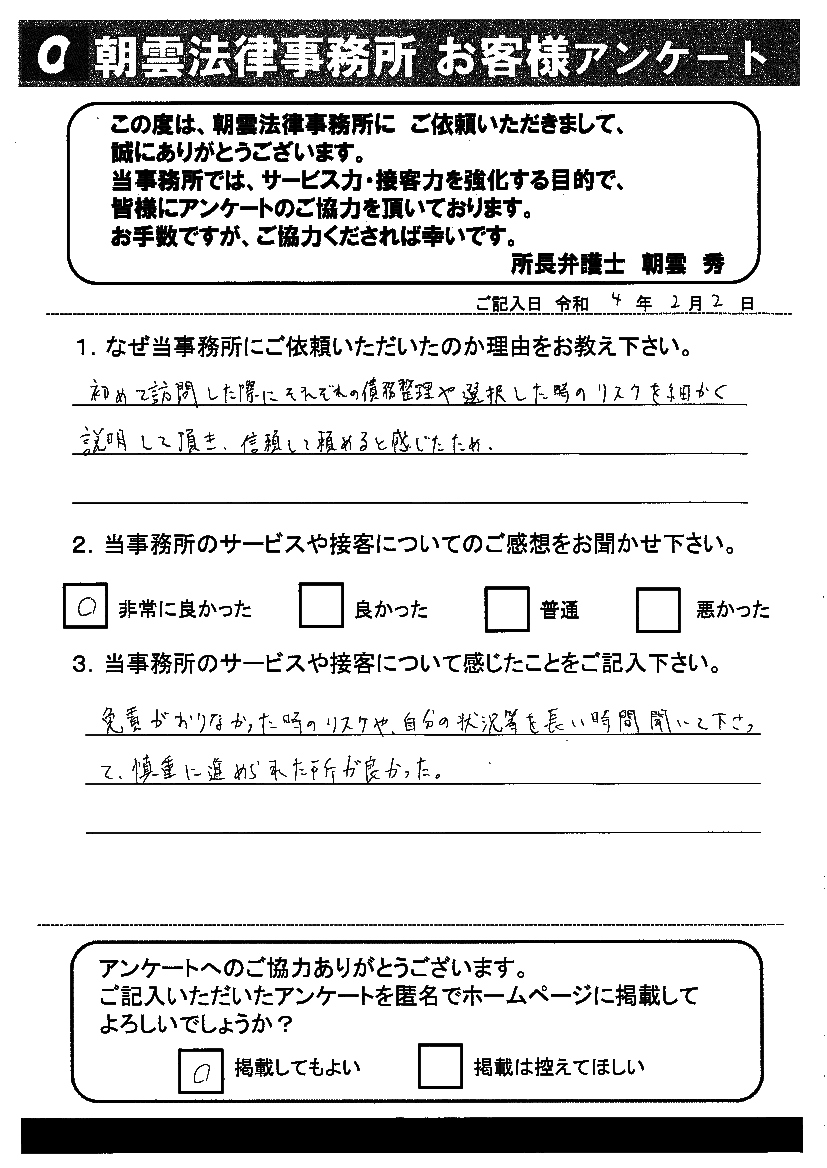 朝雲法律事務所 お客様アンケート
この度は、朝雲法律事務所に ご依頼いただきまして、
誠にありがとうございます。
当事務所では、サービス力・接客力を強化する目的で、
皆様にアンケートのご協力を頂いております。
お手数ですが、ご協力くだされば幸いです。
所長弁護士 朝雲 秀
ご記入日 令和 4 年 2月2 日
1. なぜ当事務所にご依頼いただいたのか理由をお教え下さい。
初めて訪問した際にそれぞれの債務整理や選択した時のリスクを細かく
説明して頂き、信頼して頼めると感じたため。
2. 当事務所のサービスや接客についてのご感想をお聞かせ下さい。
○ 非常に良かった 良かった 普通 悪かった
3. 当事務所のサービスや接客について感じたことをご記入下さい。
免責がおりなかった時のリスクや、自分の状況等を長い時間聞いて下さっ
て、慎重に進められた所が良かった。
アンケートへのご協力ありがとうございます。
ご記入いただいたアンケートを匿名でホームページに掲載して
よろしいでしょうか？
○ 掲載してもよい 掲載は控えてほしい